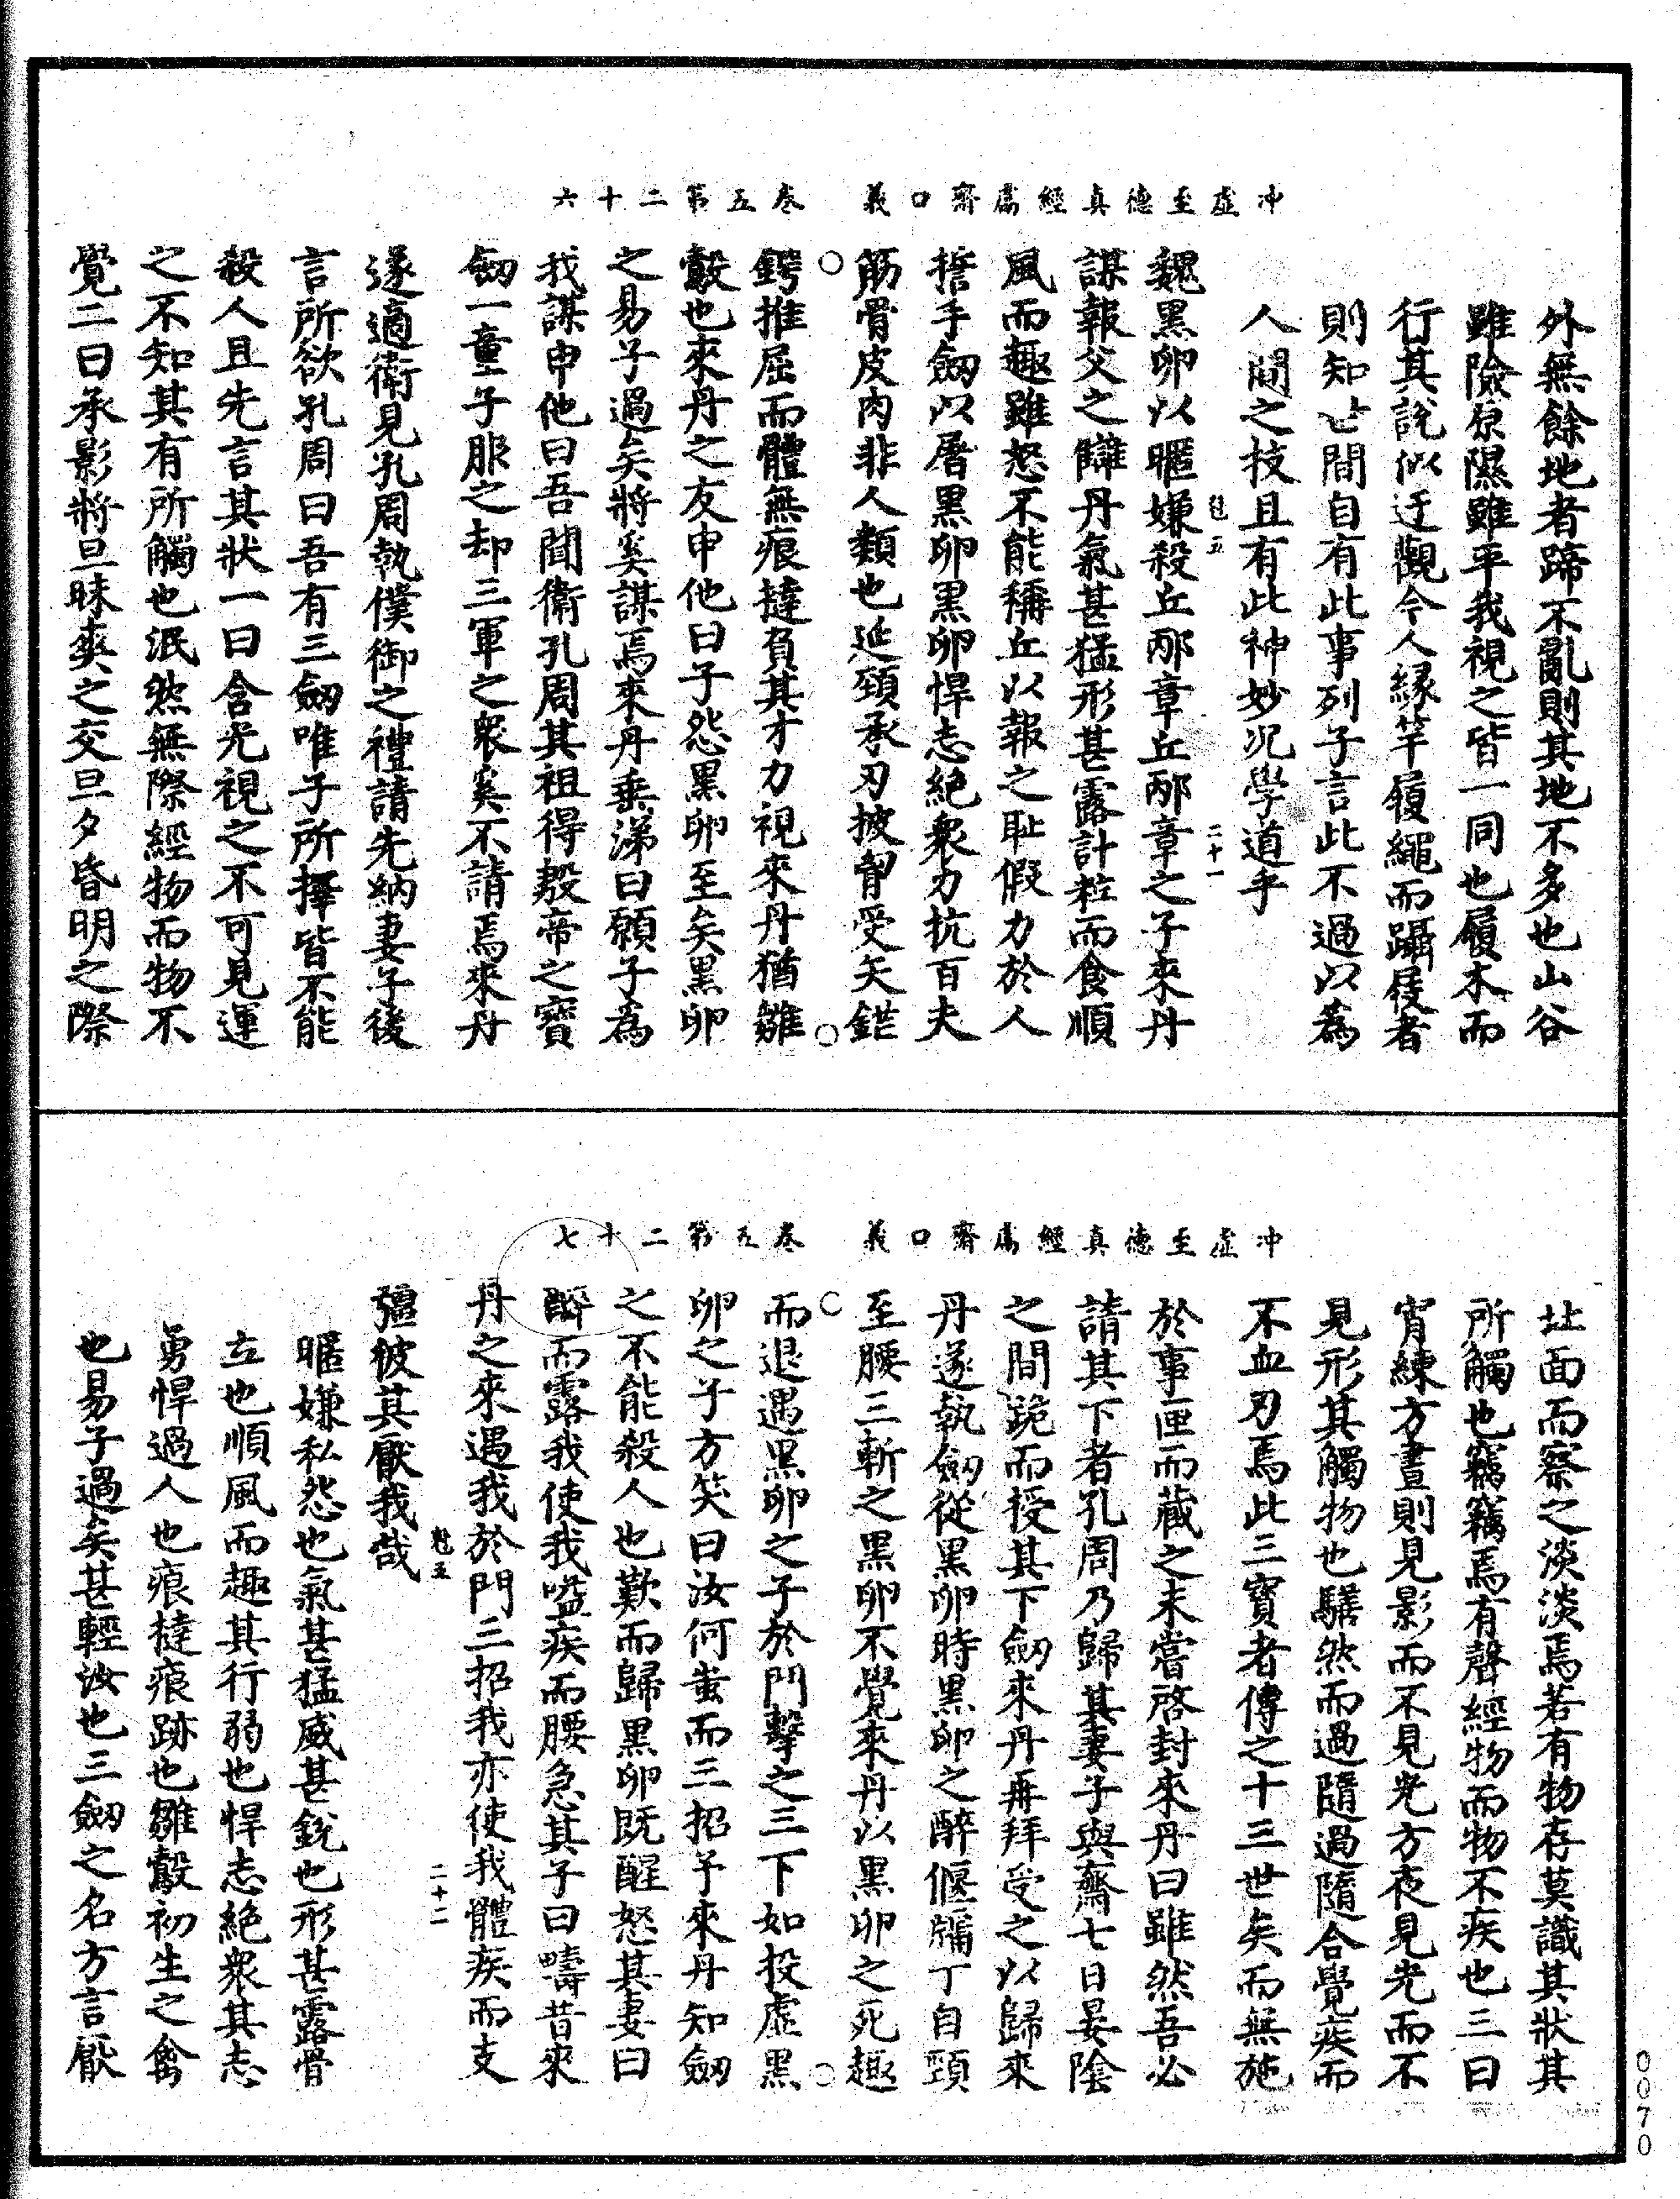 冲虛至德真經鬳齋口義　卷五第二十六
外無餘地者蹄不亂則其地不多也山谷
雖險原隰雖平我視之皆一同也履木而
行其說似迂觀今人緣竿履繩而躡屐者
則知世間自有此事列子言此不過以為
人間之技且有此神妙況學道乎
魋五　二十一
魏黑卵以暱嫌殺丘邴章丘邴章之子來丹
謀報父之讎丹氣甚猛形甚露計粒而食順
風而趣雖怒不能稱丘以報之耻假力於人
揸手劒以屠黑卵黑卵悍志絕衆力抗百夫
筋骨皮肉非人類也延頸承刃披胷受矢鋩
鍔摧屈而體無痕撻負其才力視來丹猶雛
鷇也來丹之友申他曰子怨黑卵至矣黑卵
之易子過矣將奚謀焉來丹垂涕曰願子為
我謀申他曰吾聞衛孔周其祖得殷帝之寶
劒一童子服之却三軍之衆奚不請焉來丹
遂適衛見孔周執僕御之禮請先納妻子後
言所欲孔周曰吾有三劒唯子所擇皆不能
殺人且先言其狀一曰含光視之不可見運
之不知其有所觸也泯然無際經物而物不
覺二曰承影將旦昧爽之交旦夕昏明之際
冲虛至德真經鬳齋口義　卷五第二十七
北面而察之淡淡焉若有物存莫識其狀其
所觸也竊竊焉有聲經物而物不疾也三曰
宵練方晝則見影而不見光方夜見光而不
見形其觸物也騞然而過隨過隨合覺疾而
不血刃焉此三寶者傳之十三世矣而無施
於事匣而藏之未嘗啓封來丹曰雖然吾必
請其下者孔周乃歸其妻子與齋七日晏陰
之間跪而授其下劒來丹再拜受之以歸來
丹遂執劒從黑卵時黑卵之醉偃牖下自頸
至腰三斬之黑卵不覺來丹以黑卵之死趣
而退遇黑卵之子於門擊之三下如投虛黑
卵之子方笑曰汝何蚩而三招予來丹知劒
之不能殺人也歎而歸黑卵既醒怒其妻曰
醉而露我使我嗌疾而腰急其子曰疇昔來
丹之來遇我於門三招我亦使我體疾而支
魋五　二十二
彊彼其厭我哉
暱嫌私怨也氣甚猛威甚銳也形甚露骨
立也順風而趣其行弱也悍志絕衆其志
勇悍過人也痕撻痕跡也雛鷇初生之禽
也易子過矣甚輕汝也三劒之名方言厭
0070